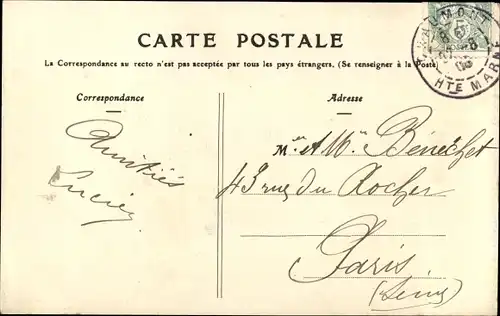 CARTE POSTALE
La Correspondance au recto n'est pas acceptée par tous les pays étrangers. (Se renseigner à la Poste)
Correspondance
Adresse
Amitiés
Lucien
Mr et Me Bénechet
43 rue du Rocher
Paris
(Seine)
HTE MARNE